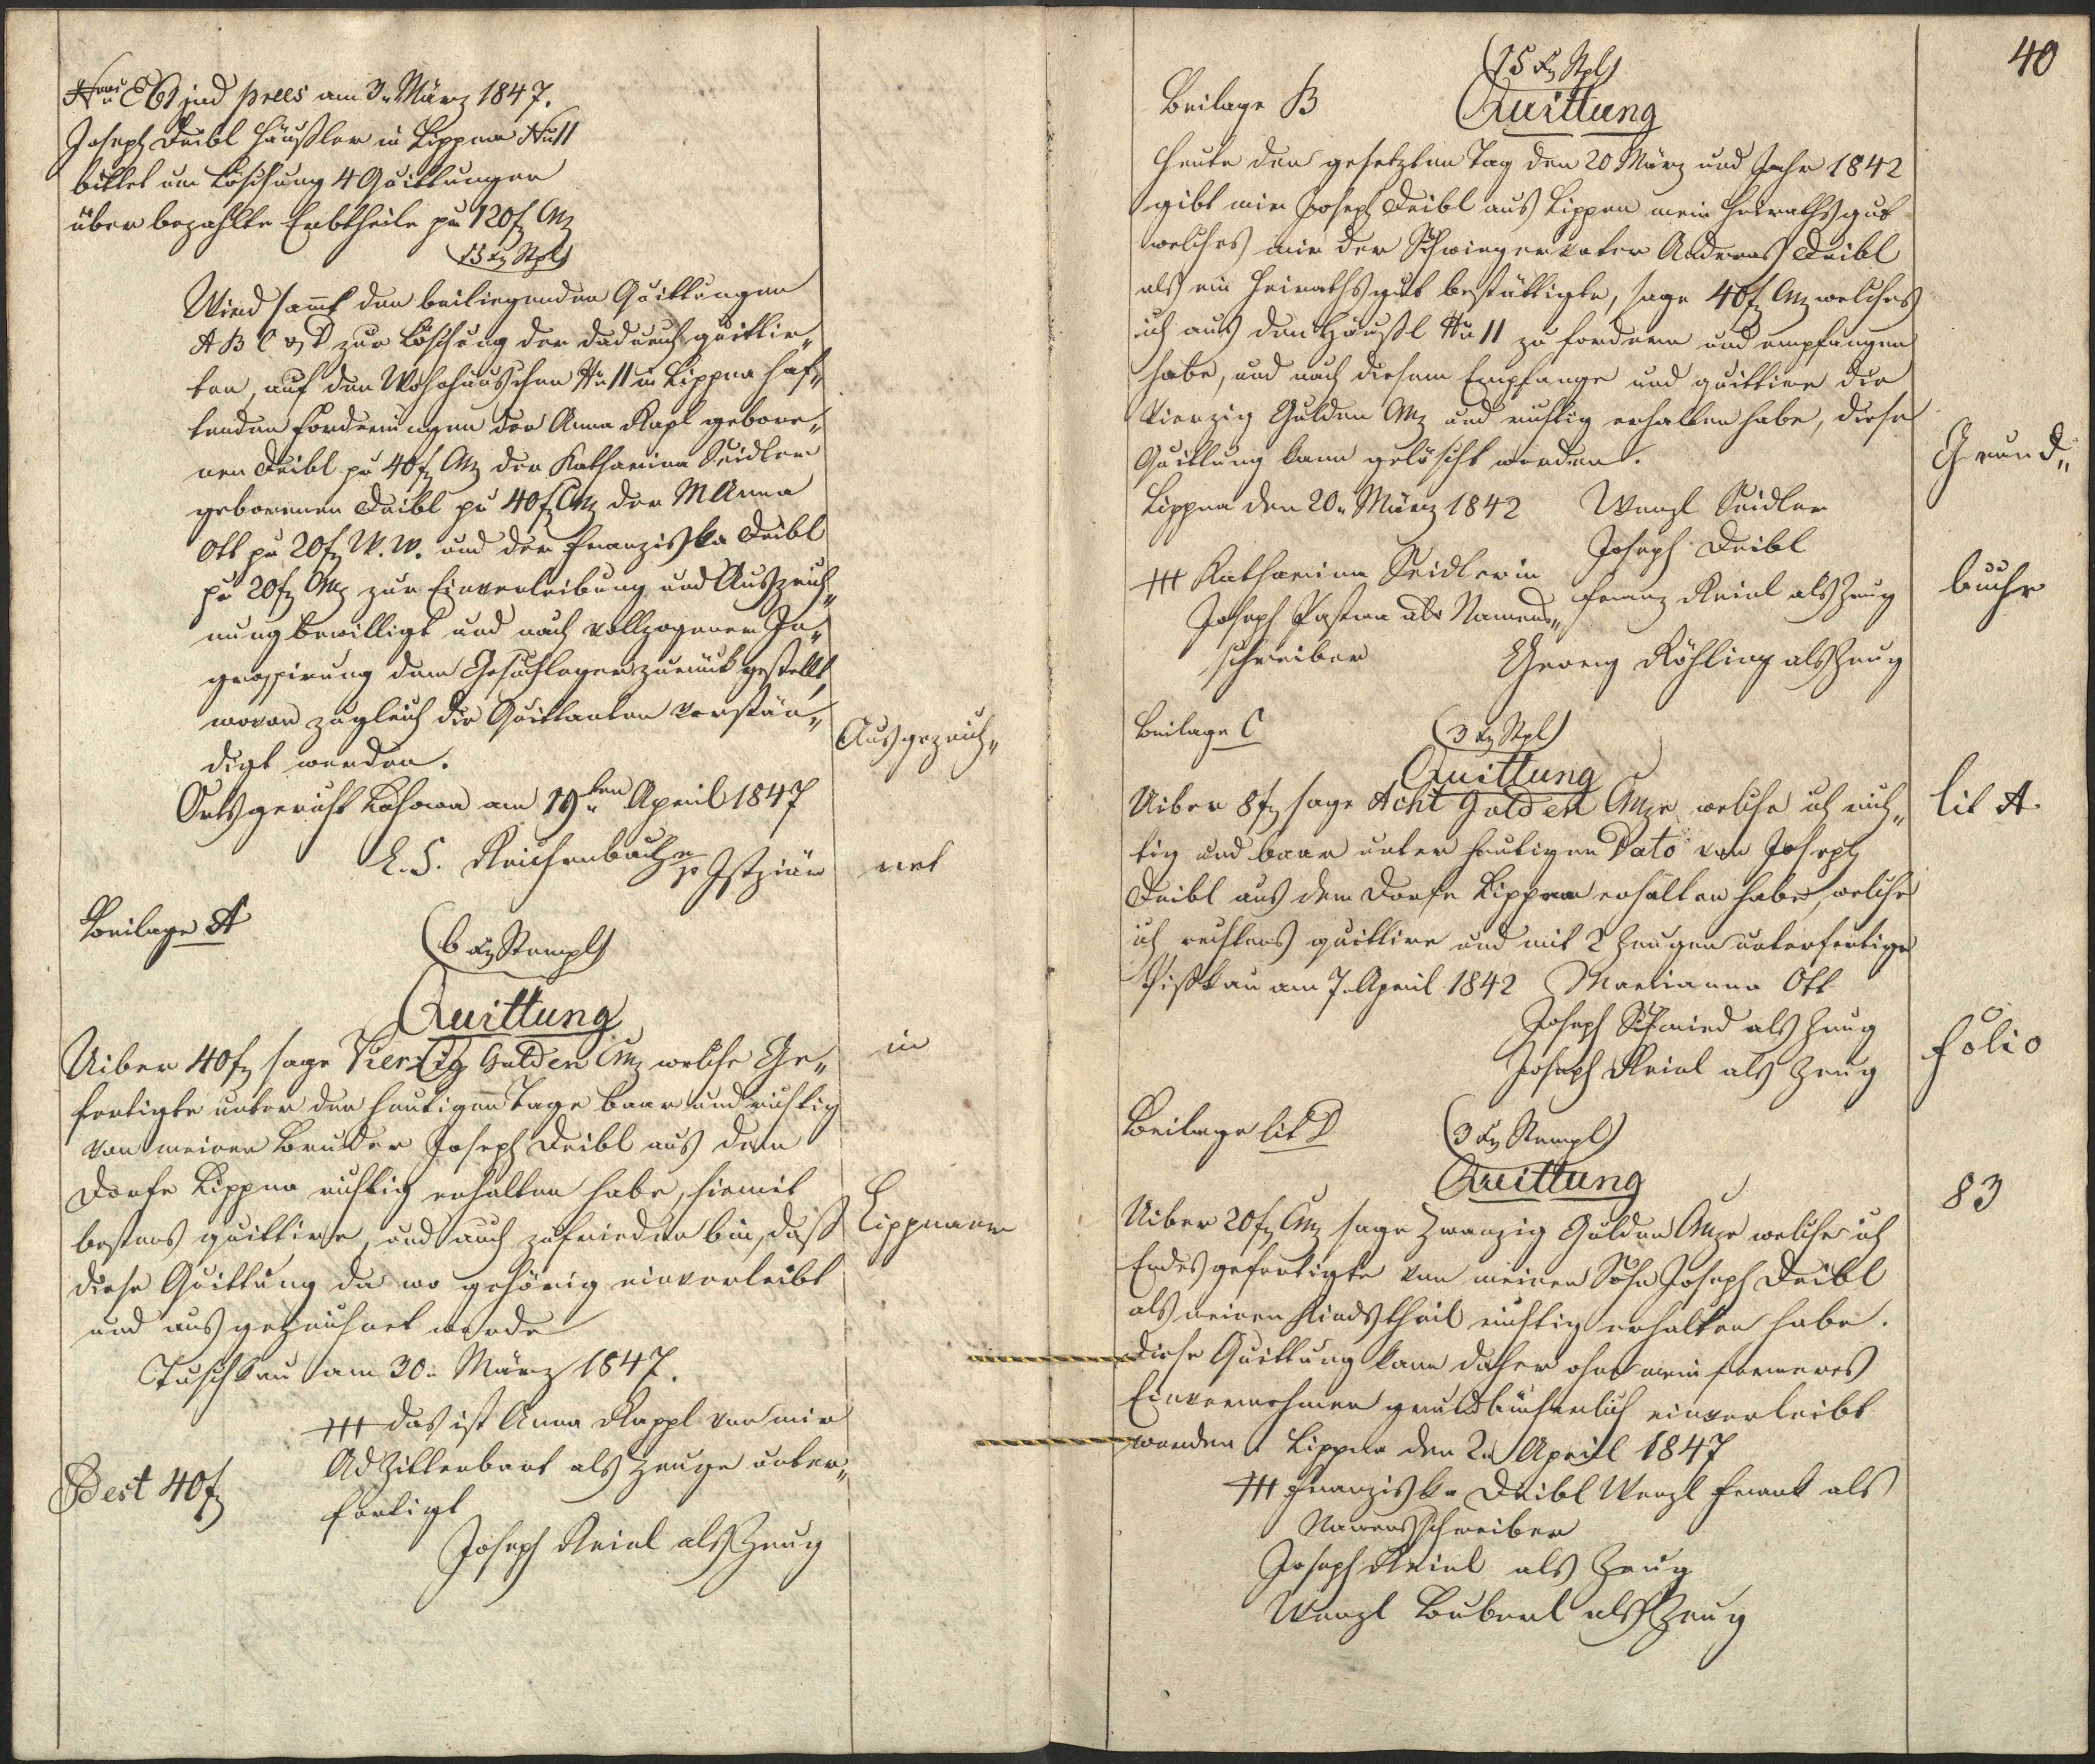 Nrus Exh. jud praes am 3. März 1847.
Joseph Deibl Häußler in Lippen Nro 11
bittet um Löschung 4 Quittungen
über bezahlte Erbtheile pr 120 f CMz
(15 xr Stpl)
Wird sammt den beiliegenden Quittungen
A B C & D zur Löschung der dadurch quittir„
ten, auf dem Wohnhäuschen Nro 11 in Lippen haf„
tenden Forderungen der Anna Kapl gebore„
nen Deibl pr 40 f CMz der Katharina Seidler
geborenen Deibl pr 40 f CMz der M Anna
Ott pr 20 f W. W. und der Franziska Deibl
pr 20 f CMz zur Einverleibung und Auszeich„
nung bewilligt und nach vollzogener In„
grossirung dem Gesuchleger zurückgestellt,
wovon zugleich die Quittanten verstän„
digt werden.
Ortsgericht am 19ten April 1847
Reichenbach Justziär
Ausgezeich„
net
in
Lippnaer
Beilage A
(6 xr Stempl)
Quittung
Uiber 40 f sage Vierzig Gulden CMz welche Ge„
fertigte unter den heutigen Tage baar und richtig
von meinen Bruder Joseph Deibl aus dem
Dorfe Lippen richtig erhalten habe, hiemit
bestens quittire, und auch zufrieden bin, daß
diese Quittung da wo gehörig einverleibt
und ausgezeichnet werde
Tuschkau am 30. März 1847.
+++ das ist Anna Kappl von mir
Ad Zitterbart als Zeuge unter„
fertigt
Joseph Keinl als Zeug
Dest 40 f
40
(15 xr Stpl)
Beilage B
Quittung
Heute den gesetzten Tag den 20 März und Jahr 1842
gibt mir Joseph Deibl aus Lippen mein Heirathsgut
welches mir der Schwiegervater Andreas Deibl
als ein Heirathsgut bestättigte, sage 40 f CMz welches
ich aus den Häußl Nro 11 zu fordern und empfangen
habe, und nach diesem Empfange und quittire die
Vierzig Gulden CMz und richtig erhalten habe, diese
Quittung kann gelöscht werden.
Lippen den 20. März 1842 Wenzl Seidler
Joseph Deibl
+++ Katharina Seidlerin
Franz Keinl als Zeug
Joseph als Namens„
schreiber
Georg Köhling als Zeug
Beilage C
(3 xr Stpl)
Quittung
Uiber 8 f sage Acht Gulden CMze welche ich rich„
tig und baar unter heutigen Dato von Joseph
Deibl aus dem Dorfe Lippen erhalten habe, welche
ich rechtens quittire und mit 2 Zeugen unterfertige
am 7. April 1842 Marianna Ott
Joseph Schmied als Zeug
Joseph Keinl als Zeug
Beilage lit D
(3 xr Stempl)
Quittung
Uiber 20 f CMz sage Zwanzig Gulden CMze welche ich
Endesgefertigte von meinen Sohn Joseph Deibl
als meinen Kindstheil richtig erhalten habe.
Diese Quittung kann daher ohne mein ferneres
Einvernehmen grundbücherlich einverleibt
werden. Lippen den 2. April 1847
+++ Franziska Deibl Wenzl Frank als
Namensschreiber
Joseph Keinl als Zeug
Wenzl Buberl als Zeug
Grund„
buche
lit A.
folio
83